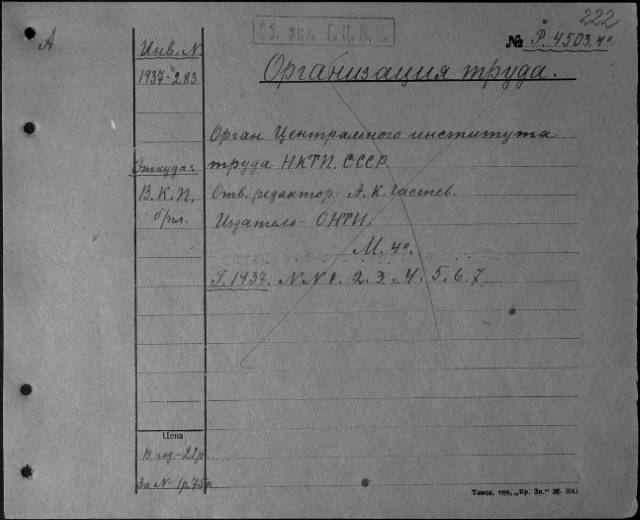 222
Об. экз. Г.П.Н.Б.
А
Инв. №
№ Р. 4503.4º
1937-283
Организация труда.
Орган Центрального института
Откуда:
труда НКТП. СССР
В.К.П.
Отв. редактор - А.К. Гастев.
брл.
Издатель - ОНТИ.
М. 4º.
Г. 1937. N N 1. 2. 3. 4. 5. 6. 7
Цена
В год - 21р.
За N - 1р. 75к
Томск, тип. „Кр. Зн." 36-3041